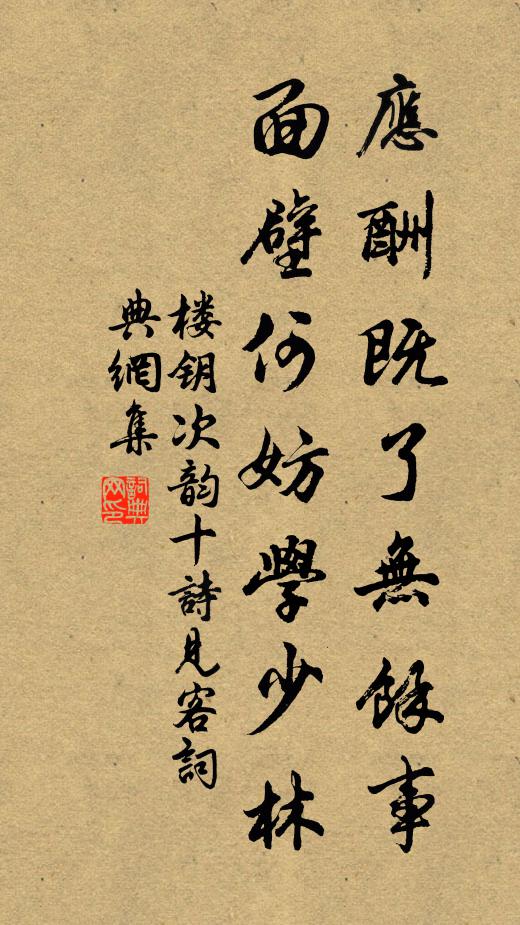 應酬既了無餘事
面壁何妨學少林
楼钥次韵十詩見客詞
典網集
詞典网印